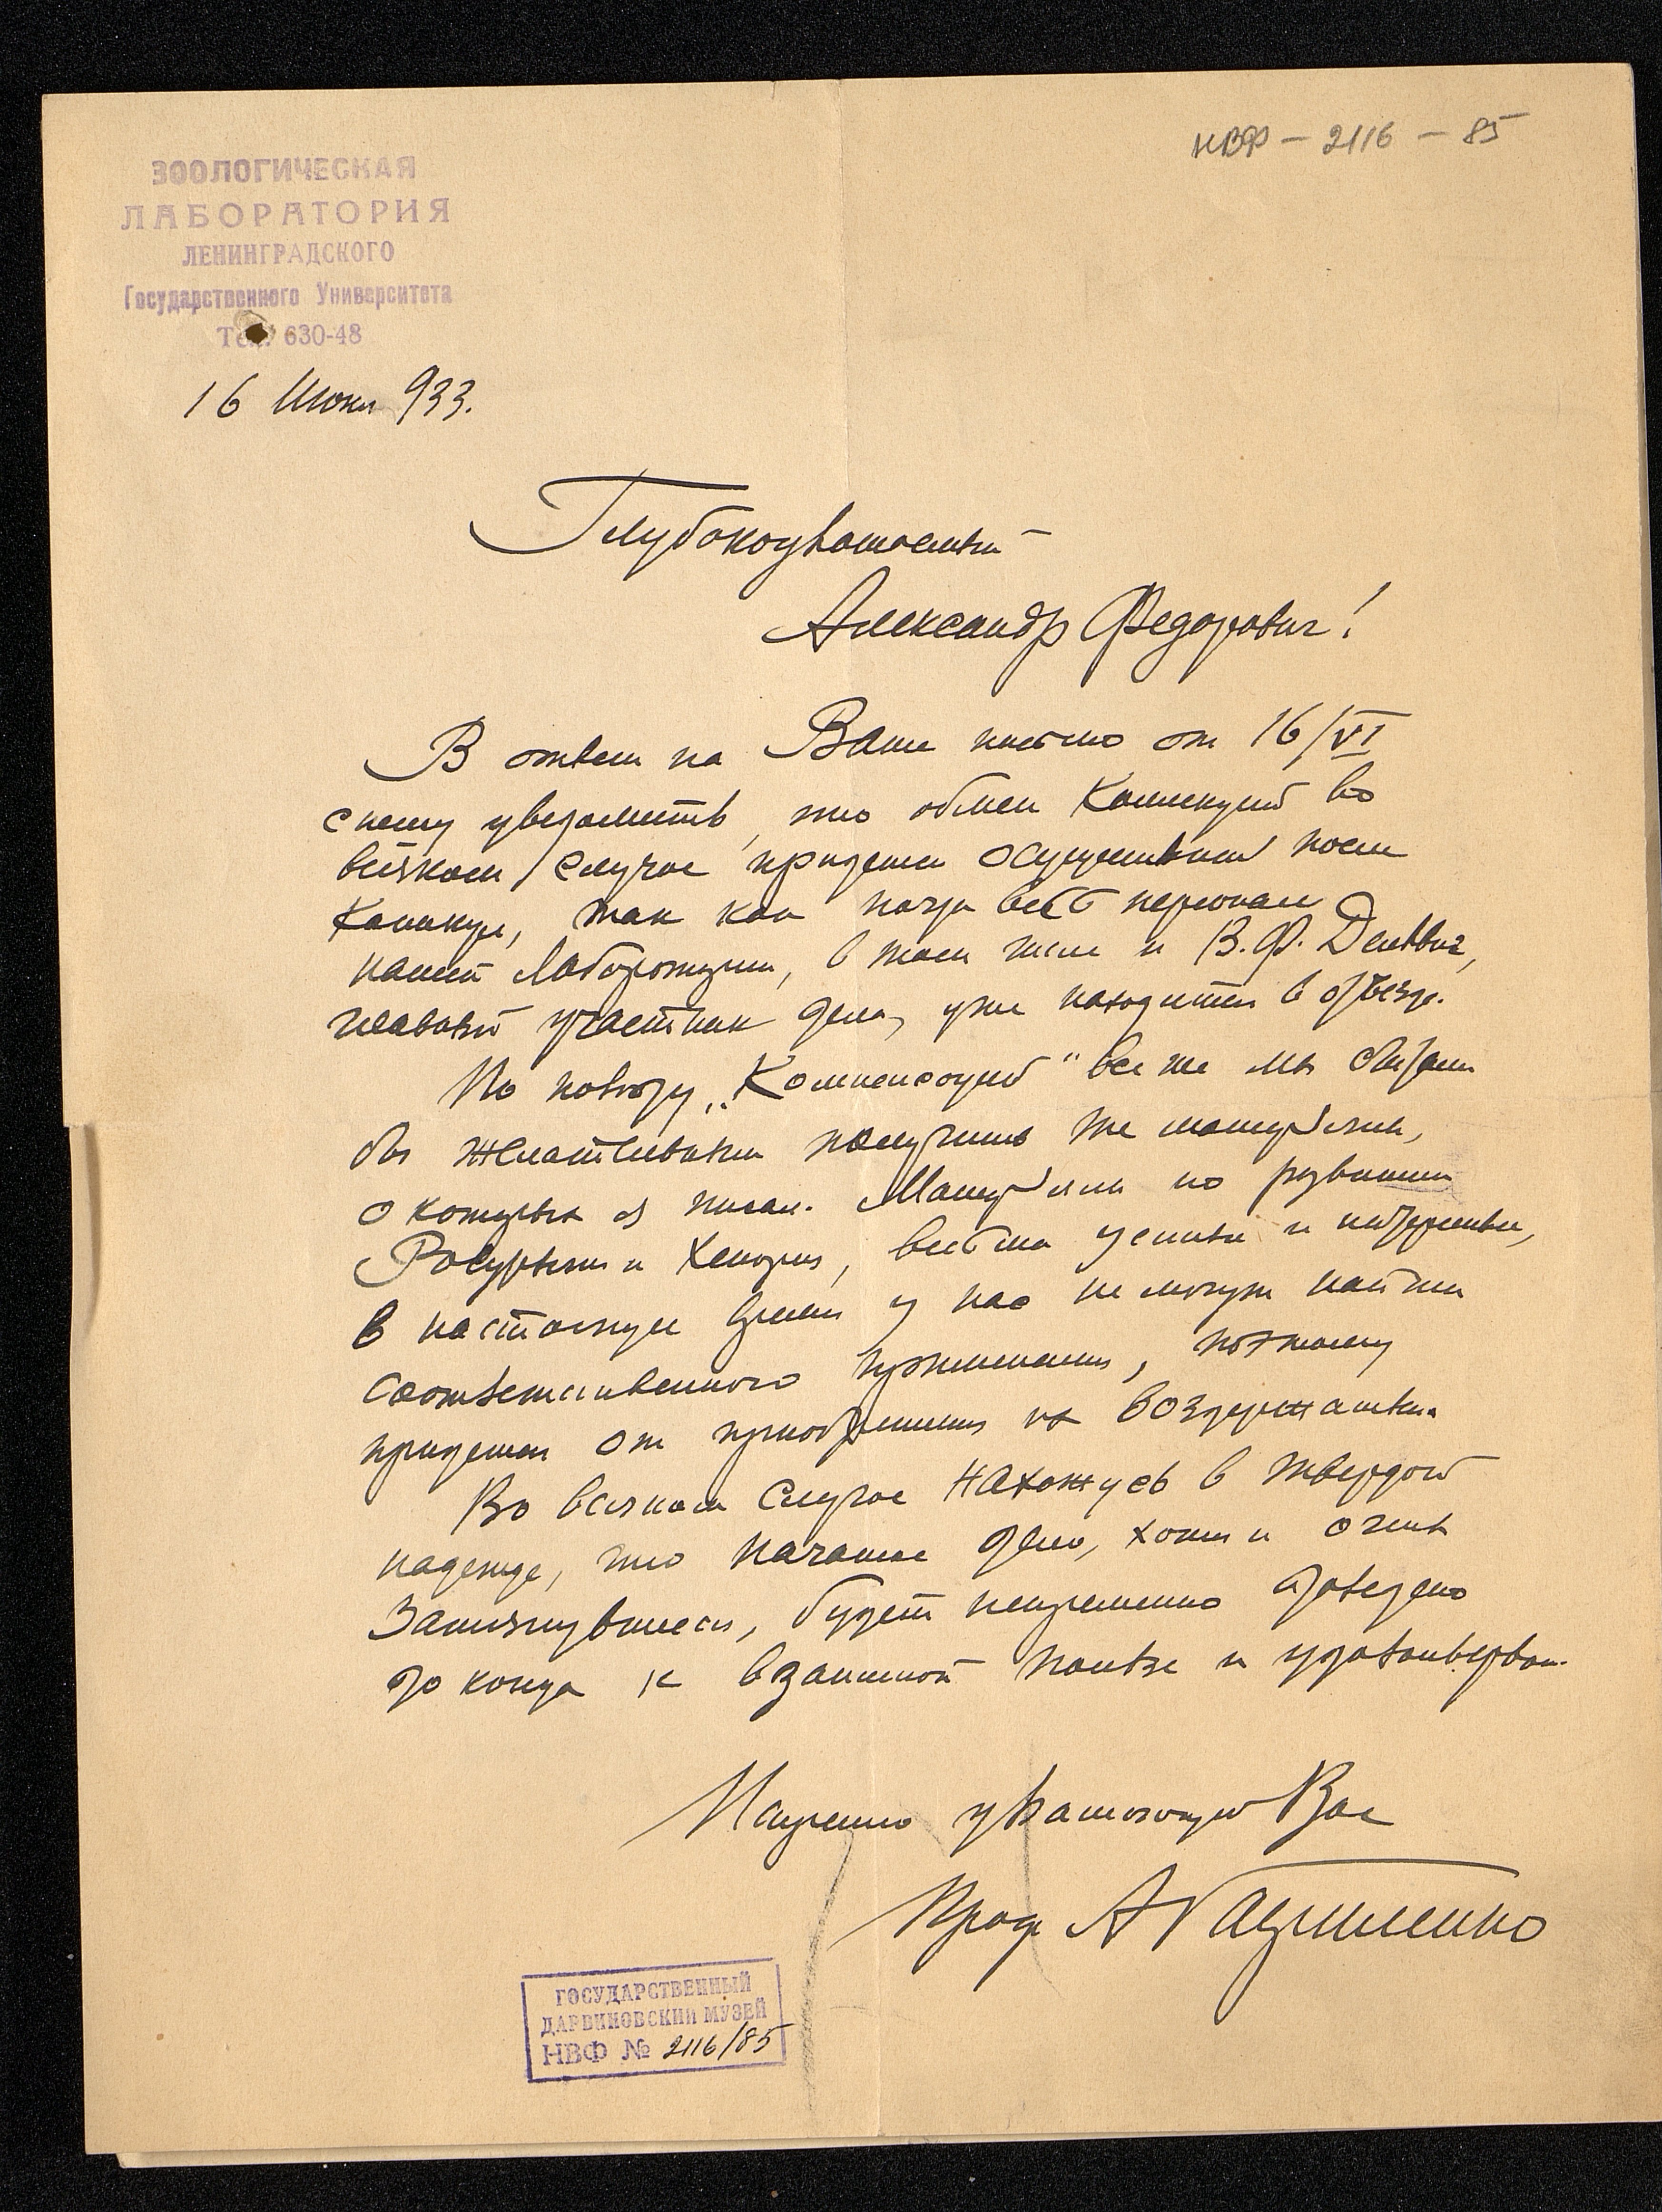 НВФ – 2116 – 85
ЗООЛОГИЧЕСКАЯ
ЛАБОРАТОРИЯ
ЛЕНИНГРАДСКОГО
Государственного Университета
Тел. 630-48
16 Июня 933.
Глубокоуважаемый
Александр Федорович!
В ответ на Ваше письмо от 16/VI
спешу уведомить, что обмен коллекций во
всяком случае придется осуществить после
каникул, так как почти весь персонал
нашей Лаборатории, в том числе и В.Ф. Дельвиг,
главный участник дела, уже находится в отъезде.
По поводу „Компенсаций" все же мы
бы желательным получить те материалы,
о которых я писал. Материалы по развитию
и, весьма ценные и интересные,
в настоящее время у нас не могут найти
соответственного применения, поэтому
придется от приобретения их воздержаться.
Во всяком случае нахожусь в твердой
надежде, что начатое дело, хотя и очень
затянувшееся, будет непременно доведено
до конца к взаимной пользе и удовлетворен.
Искренно уважающий Вас
Проф А Гавриленко
ГОСУДАРСТВЕННЫЙ
ДАРВИНОВСКИЙ МУЗЕЙ
НВФ № 2116/85